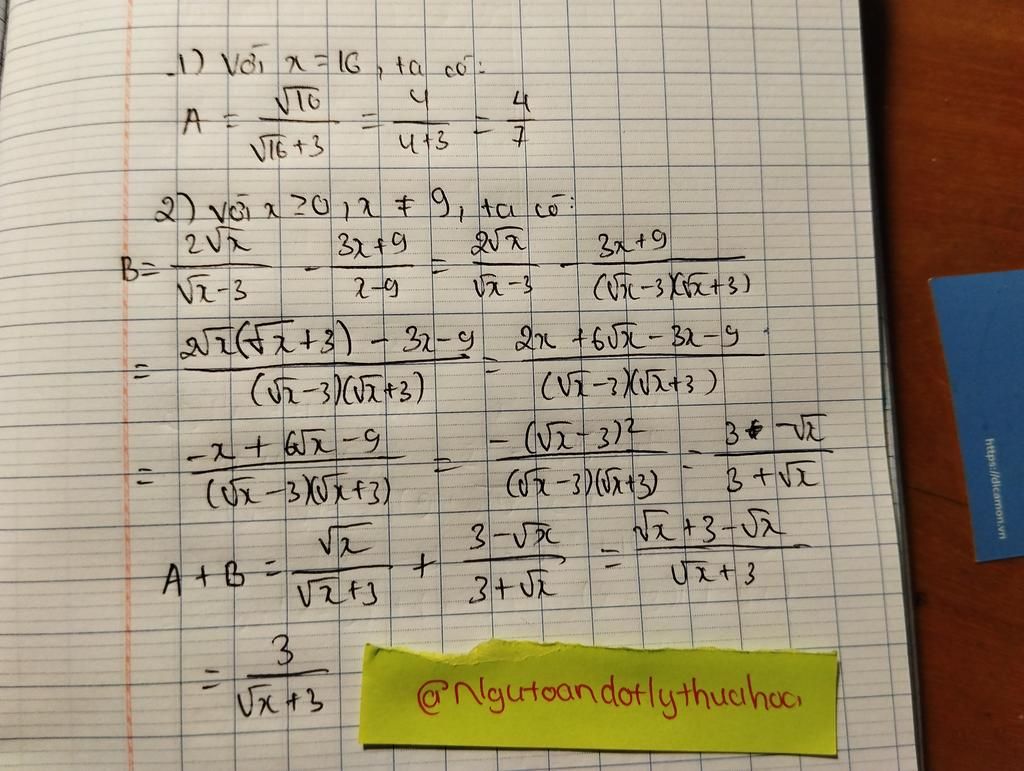 1) Với x = 16, ta có:
A = √16/(√16+3) = 4/(4+3) = 4/7
2) Với x ≥ 0, x ≠ 9, ta có:
B = 2√x/(√x-3) - (3x+9)/(x-9) = 2√x/(√x-3) - (3x+9)/((√x-3)(√x+3))
= (2√x(√x+3) - 3x-9)/((√x-3)(√x+3)) = (2x+6√x-3x-9)/((√x-3)(√x+3))
= (-x+6√x-9)/((√x-3)(√x+3)) = -(√x-3)²/((√x-3)(√x+3)) = (3-√x)/(3+√x)
A+B = √x/(√x+3) + (3-√x)/(3+√x) = (√x+3-√x)/(√x+3)
= 3/(√x+3)
@Ngutoandotlythuahoa
https://dicamon.vn